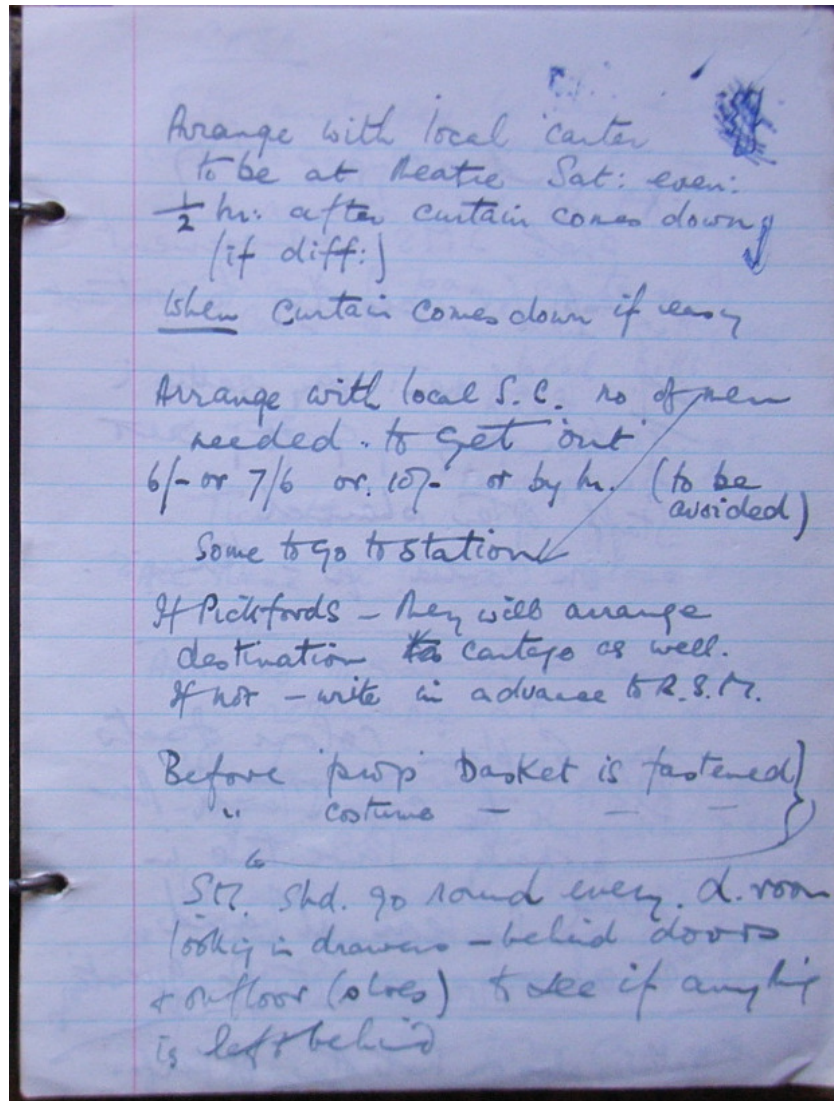 Arrange with local carter
to be at theatre Sat: even:
½ hr: after curtain comes down
(if diff:)
When curtain comes down if easy
Arrange with local S.C. no of men
needed .. to 'get out'
6/- or 7/6 or 10/- or by hr. (to be
avoided)
Some to go to station
If Pickfords – they will arrange
destination cartage as well.
If not – write in advance to R.S.M.
Before 'prop' basket is fastened
" costume – – –
S.M. shd. go round every d. room
looking in drawers – behind doors
+ on floor (shoes) to see if anything
is left behind